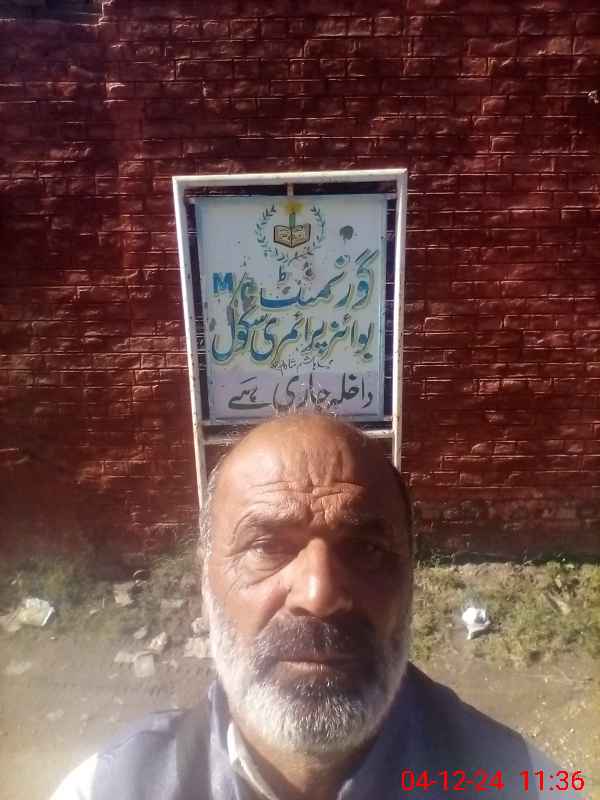 گورنمنٹ M/C
بوائز پرائمری سکول
داخلہ جاری ہے
04-12-24 11:36